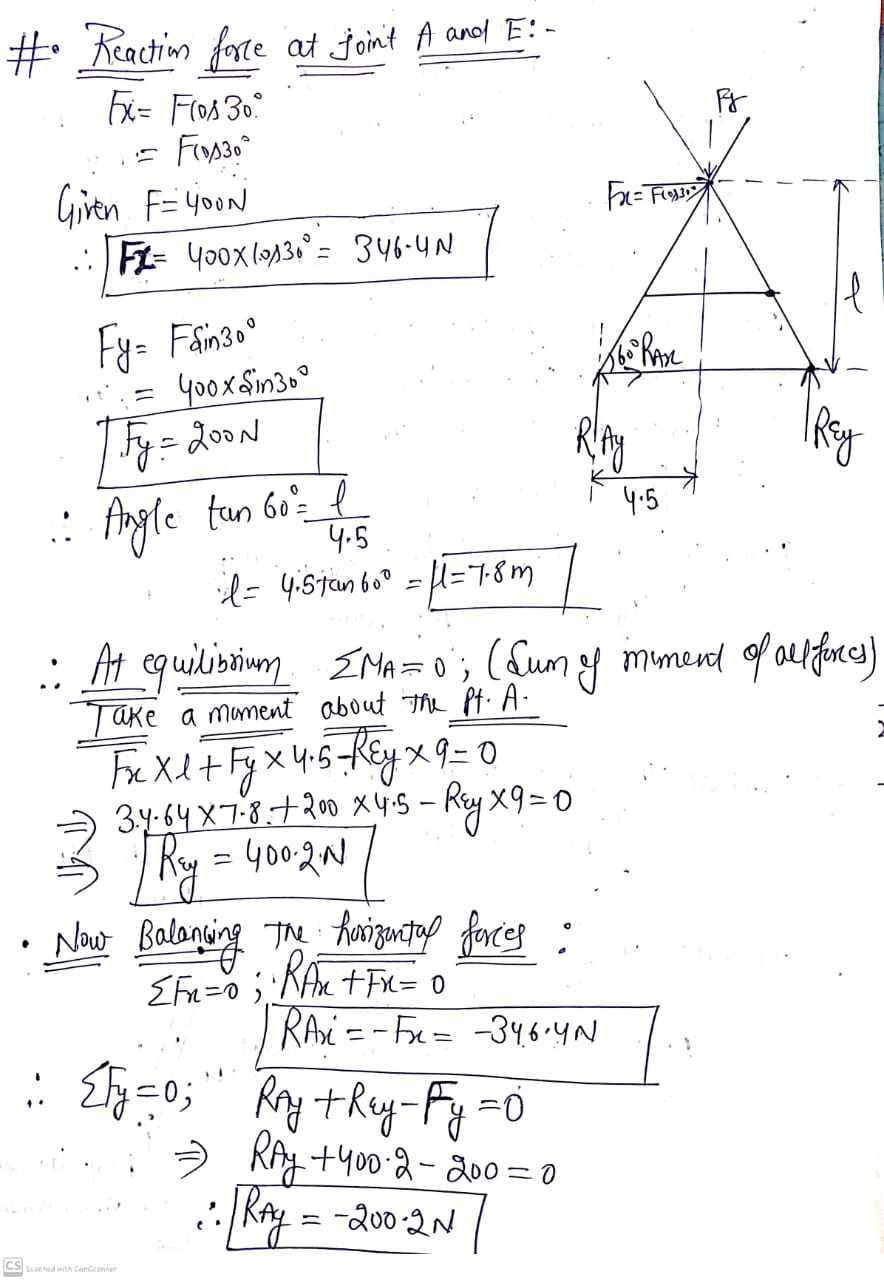 #. Reaction force at joint A and E:-
Fx= Fcos30°
= Fcos30°
Given F=400N
∴ Fx= 400xcos30° = 346.4N
Fy= Fsin30°
= 400xSin30°
Fy=200N
∴ Angle tan 60°= l/4.5
l= 4.5tan60° = l=7.8m
∴ At equilibrium ΣMA=0; (Sum of moment of all forces)
Take a moment about the Pt. A.
Fx Xl+Fy×4.5-REy×9=0
⇒ 34.64X7.8.+200 X4.5 - Rey X9=0
⇒ Rey = 400.2N
• Now Balancing The horizontal forces :
ΣFx=0; RAx+Fx=0
RAx=-Fx= -346.4N
∴ ΣFy=0; RAy+Rey-Fy=0
⇒ RAy+400.2-200=0
∴ RAy = -200.2N
Fy
Fx= Fcos30°
l
60° RAx
RAy
REy
4.5
CS Scanned with CamScanner